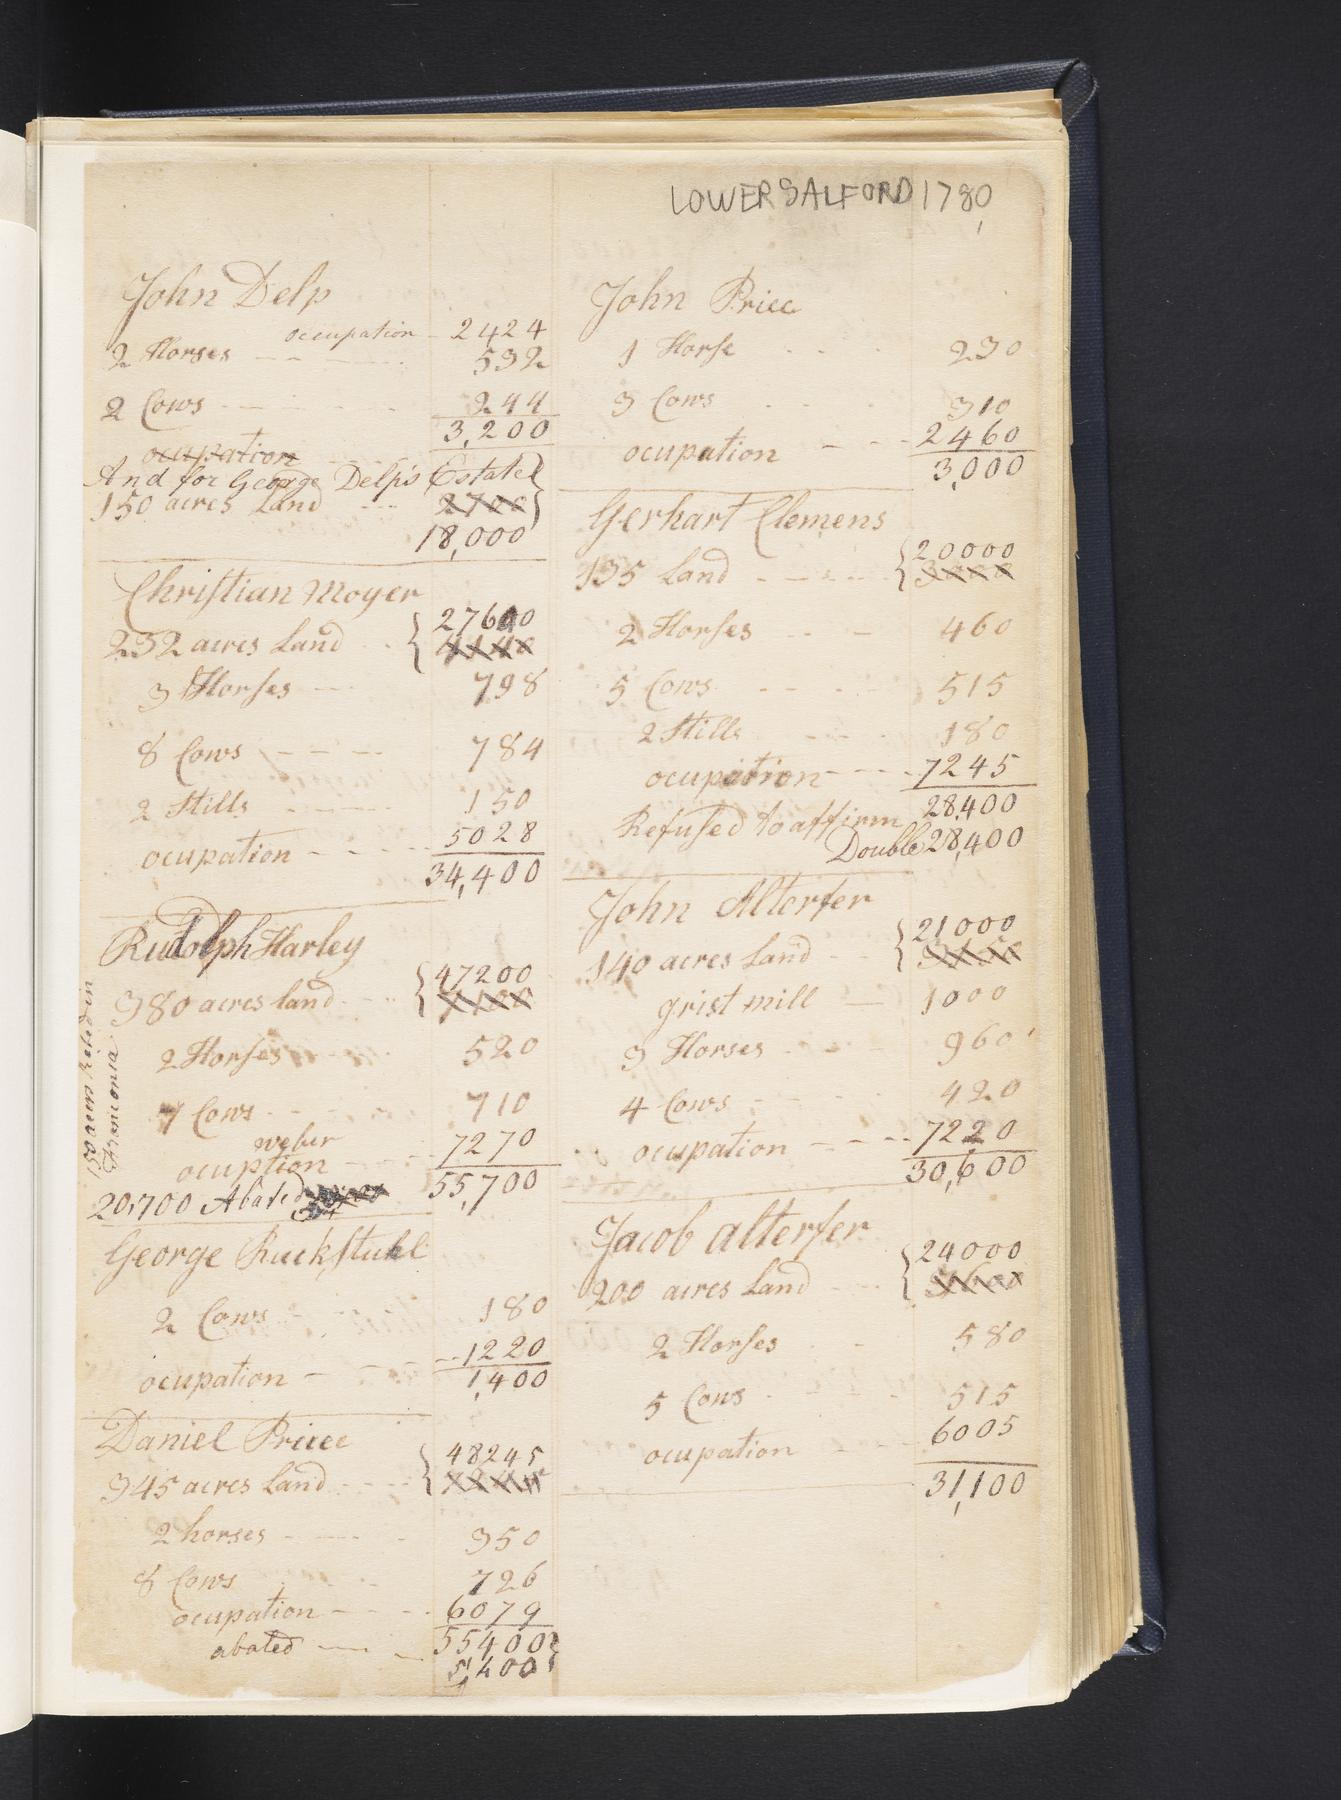 LOWER SALFORD 1780
John Delp
ocupation 2424
2 Horses 532
2 Cows 244
3,200
ocupation
And for George Delp's Estate
150 acres Land 2700
18,000
Christian Moyer
27600
232 acres Land
3 Horses 798
8 Cows 784
2 Stills 150
ocupation 5028
34,400
Rudolph Harley
47200
380 acres land
2 Horses 520
7 Cows 710
weber
ocuption 7270
55,700
20,700 Abated
150 acres in
Franconia
George Ruckstuhl
2 Cows 180
ocupation 1220
1,400
Daniel Price
48245
345 acres Land
2 horses 350
8 Cows 726
ocupation 6079
55400
abated 5,400
John Price
1 Horse 230
3 Cows 310
ocupation 2460
3,000
Gerhart Clemens
20000
135 Land
2 Horses 460
5 Cows 515
2 Stills 180
ocupation 7245
28,400
Refused to affirm
Double 28,400
John Alterfer
21000
140 acres Land
grist mill 1000
3 Horses 960
4 Cows 420
ocupation 7220
30,600
Jacob Alterfer
24000
200 acres Land
2 Horses 580
5 Cows 515
ocupation 6005
31,100